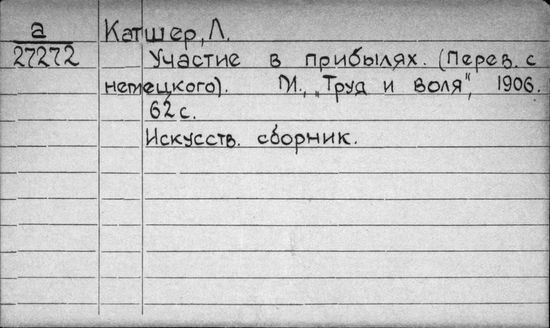 а
27272
Катшер, Л.
Участие в прибылях. (Перев. с
немецкого). М., „Труд и воля", 1906.
62 с.
Искусств. сборник.